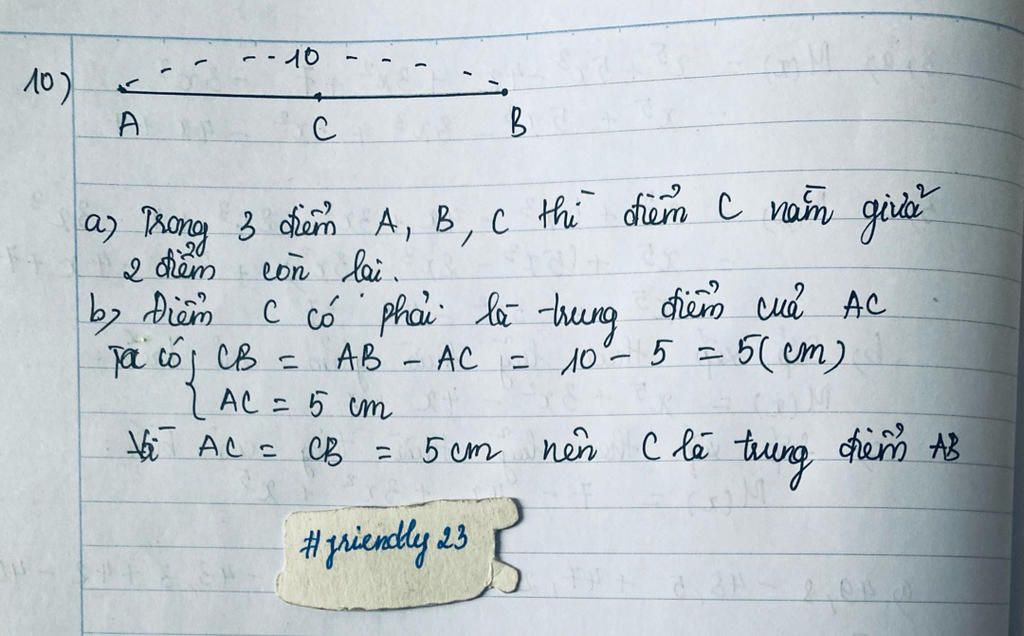 10)
10
A
C
B
a) Trong 3 điểm A, B, C thì điểm C nằm giữa
2 điểm còn lại.
b) Điểm C có phải là trung điểm của AC
Ta có { CB = AB - AC = 10 - 5 = 5 (cm)
AC = 5 cm
Vì AC = CB = 5 cm nên C là trung điểm AB
#friendly 23